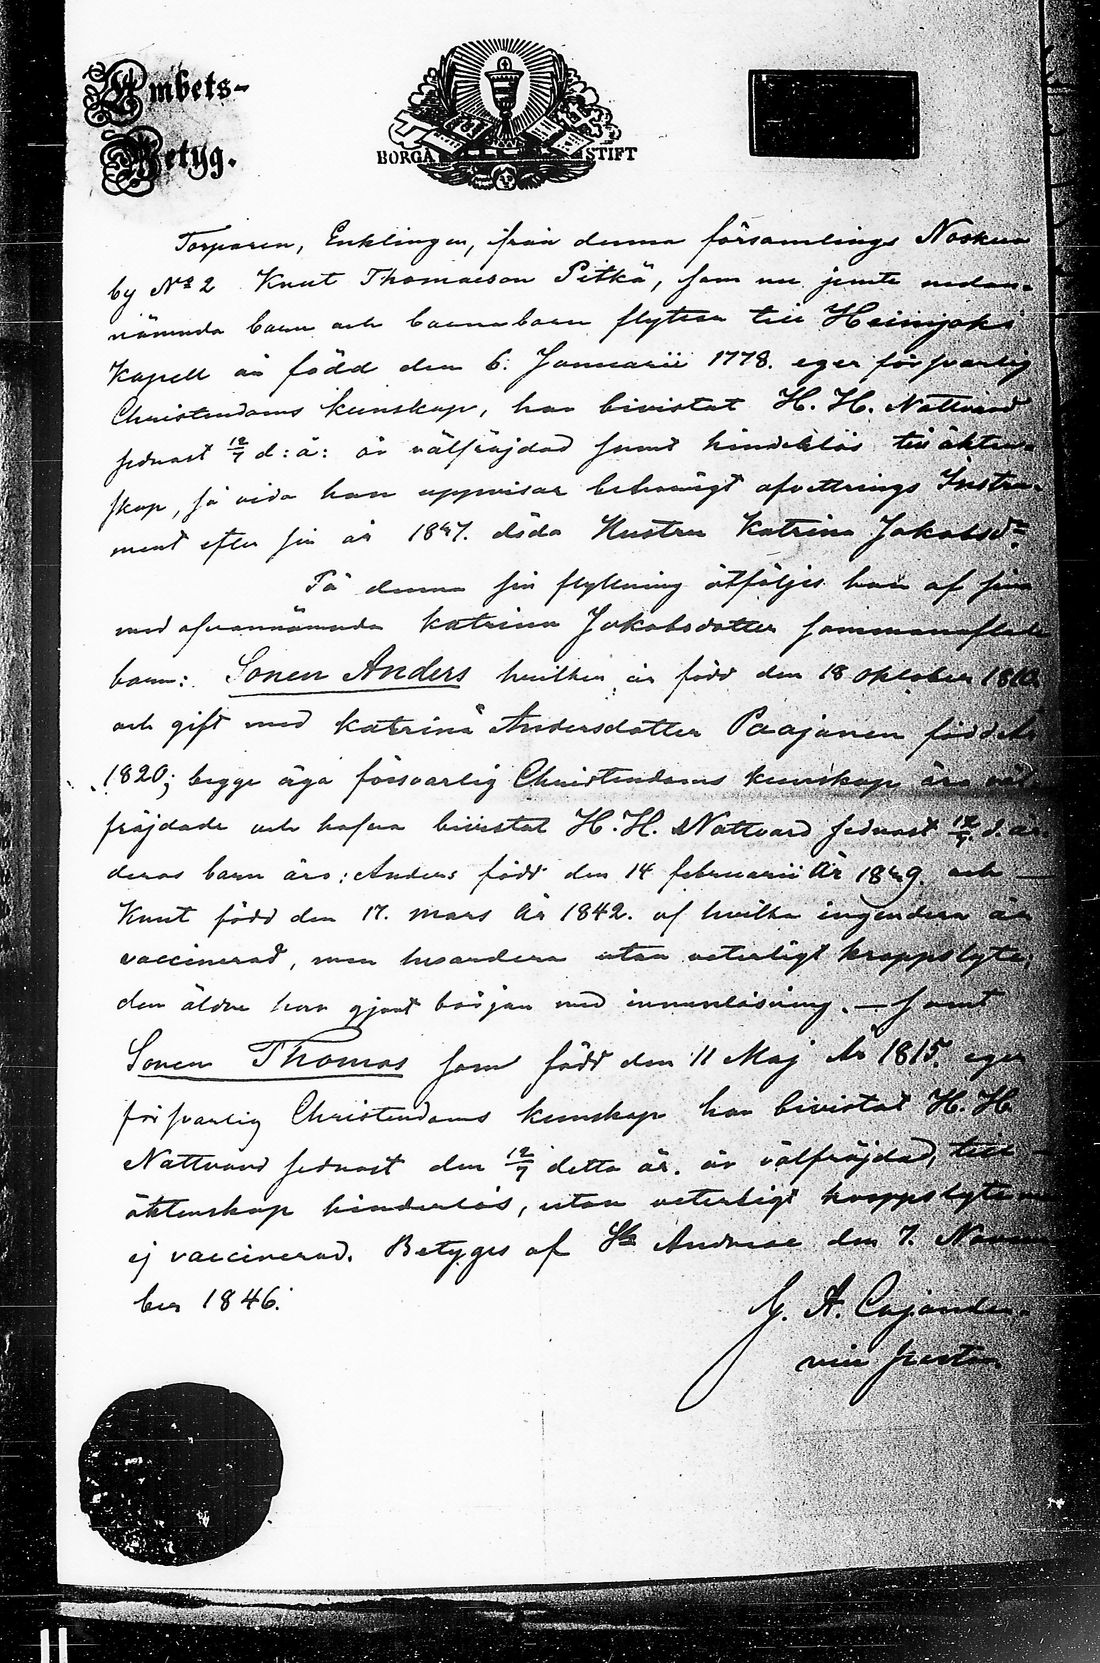 Embets-
Betyg.
BORGÅ STIFT
Torparen, Enklingen, från denna församlings Noskua
by No 2 Knut Thomasson Pitkä, som nu jemte nedan-
nämnda barn och barnabarn flyttar till Heinjoki
Kapell är född den 6. Januarii 1778. eger försvarlig
Christendoms kunskap, har bivistat H. H. Nattvard
sednast 12/7 d: å: är välfräjdad samt hinderlös till äkten-
skap, så vida han uppvisar behörigt afvittrings Instru-
ment efter sin år 1847. döda Hustru Katrina Jakobsdr.
På denna sin flyttning åtföljes han af sina
med ofvannämnda Katrina Jakobsdotter sammanaflade
barn: Sonen Anders hvilken är född den 18 Oktober 1810
och gift med Katrina Andersdotter Paajanen född år
1820; begge äga försvarlig Christendoms kunskap äro väl
fräjdade och hafva bivistat H. H. Nattvard sednast 12/7 d. år.
deras barn äro: Anders född den 14 februarii År 1849. och —
Knut född den 17. mars År 1842. af hvilka ingendera är
vaccinerad, men hvardera utan veterligt kroppslyte;
den äldre har gjort början med innanläsning. — samt
Sonen Thomas som född den 11 Maj År 1815. eger
försvarlig Christendoms kunskap har bivistat H. H.
Nattvard sednast den 12/7 detta år. är välfräjdad, till —
äktenskap hinderlös, utan veterligt kroppslyte men
ej vaccinerad. Betyges af St Andreae den 7. Novem
ber 1846.
G. A. Cajander.
vice pastor.